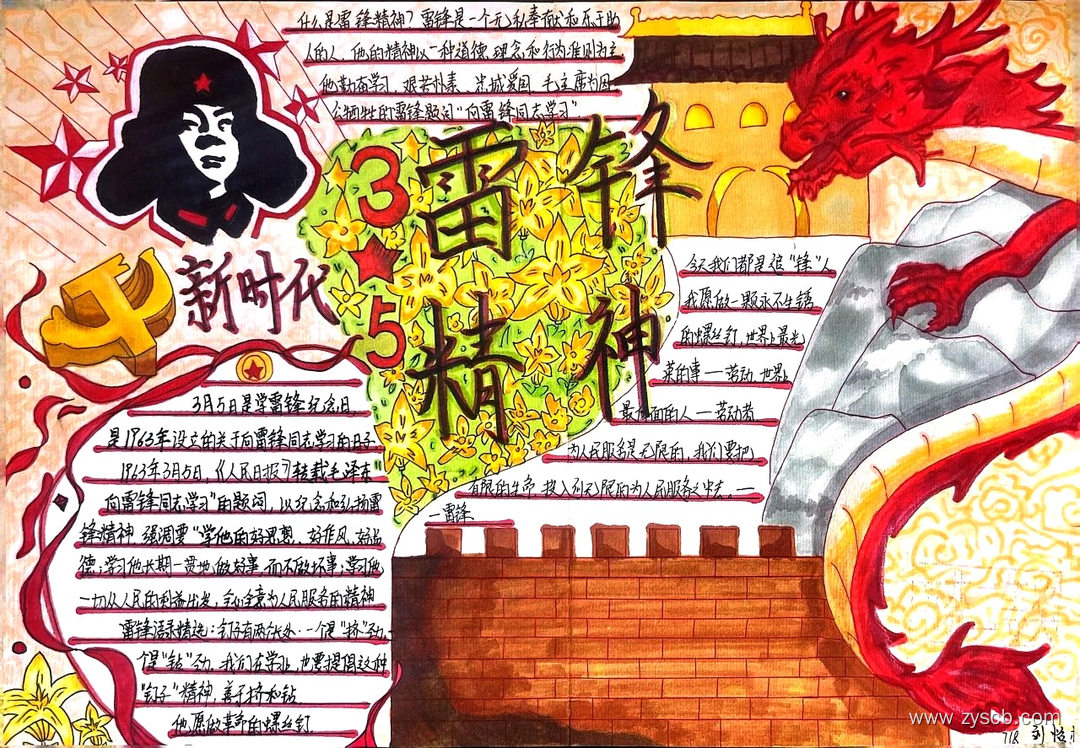 什么是雷锋精神?雷锋是一个无私奉献和乐于助
人的人,他的精神以一种道德理念和行为准则为主
他勤奋学习、艰苦朴素、忠诚爱国,毛主席为因
公牺牲的雷锋题词"向雷锋同志学习".
3★5
雷锋
精神
新时代
3月5日是学雷锋纪念日
是1963年设立的关于向雷锋同志学习的日子
1963年3月5日,《人民日报》转载毛泽东"
向雷锋同志学习"的题词,以纪念和弘扬雷
锋精神 强调要"学他的好思想、好作风、好品
德;学习他长期一贯地做好事,而不做坏事;学习他
一切从人民的利益出发,全心全意为人民服务的精神
雷锋语录精选:钉子有两个长处:一个是"挤"劲,
个是"钻"劲,我们在学习上,也要提倡这种
"钉子"精神,善于挤和钻
他愿做革命的螺丝钉.
今天我们都是追"锋"人
我愿做一颗永不生锈
的螺丝钉,世界上最光
荣的事——劳动,世界上
最体面的人——劳动者
为人民服务是无限的,我们要把
有限的生命,投入到无限的为人民服务之中去。——
—雷锋
www.zyscb.com
718 刘